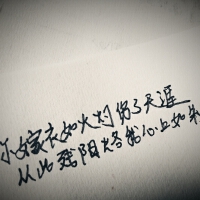 你嫁衣如火灼伤了天涯
从此残阳烙我心上如朱